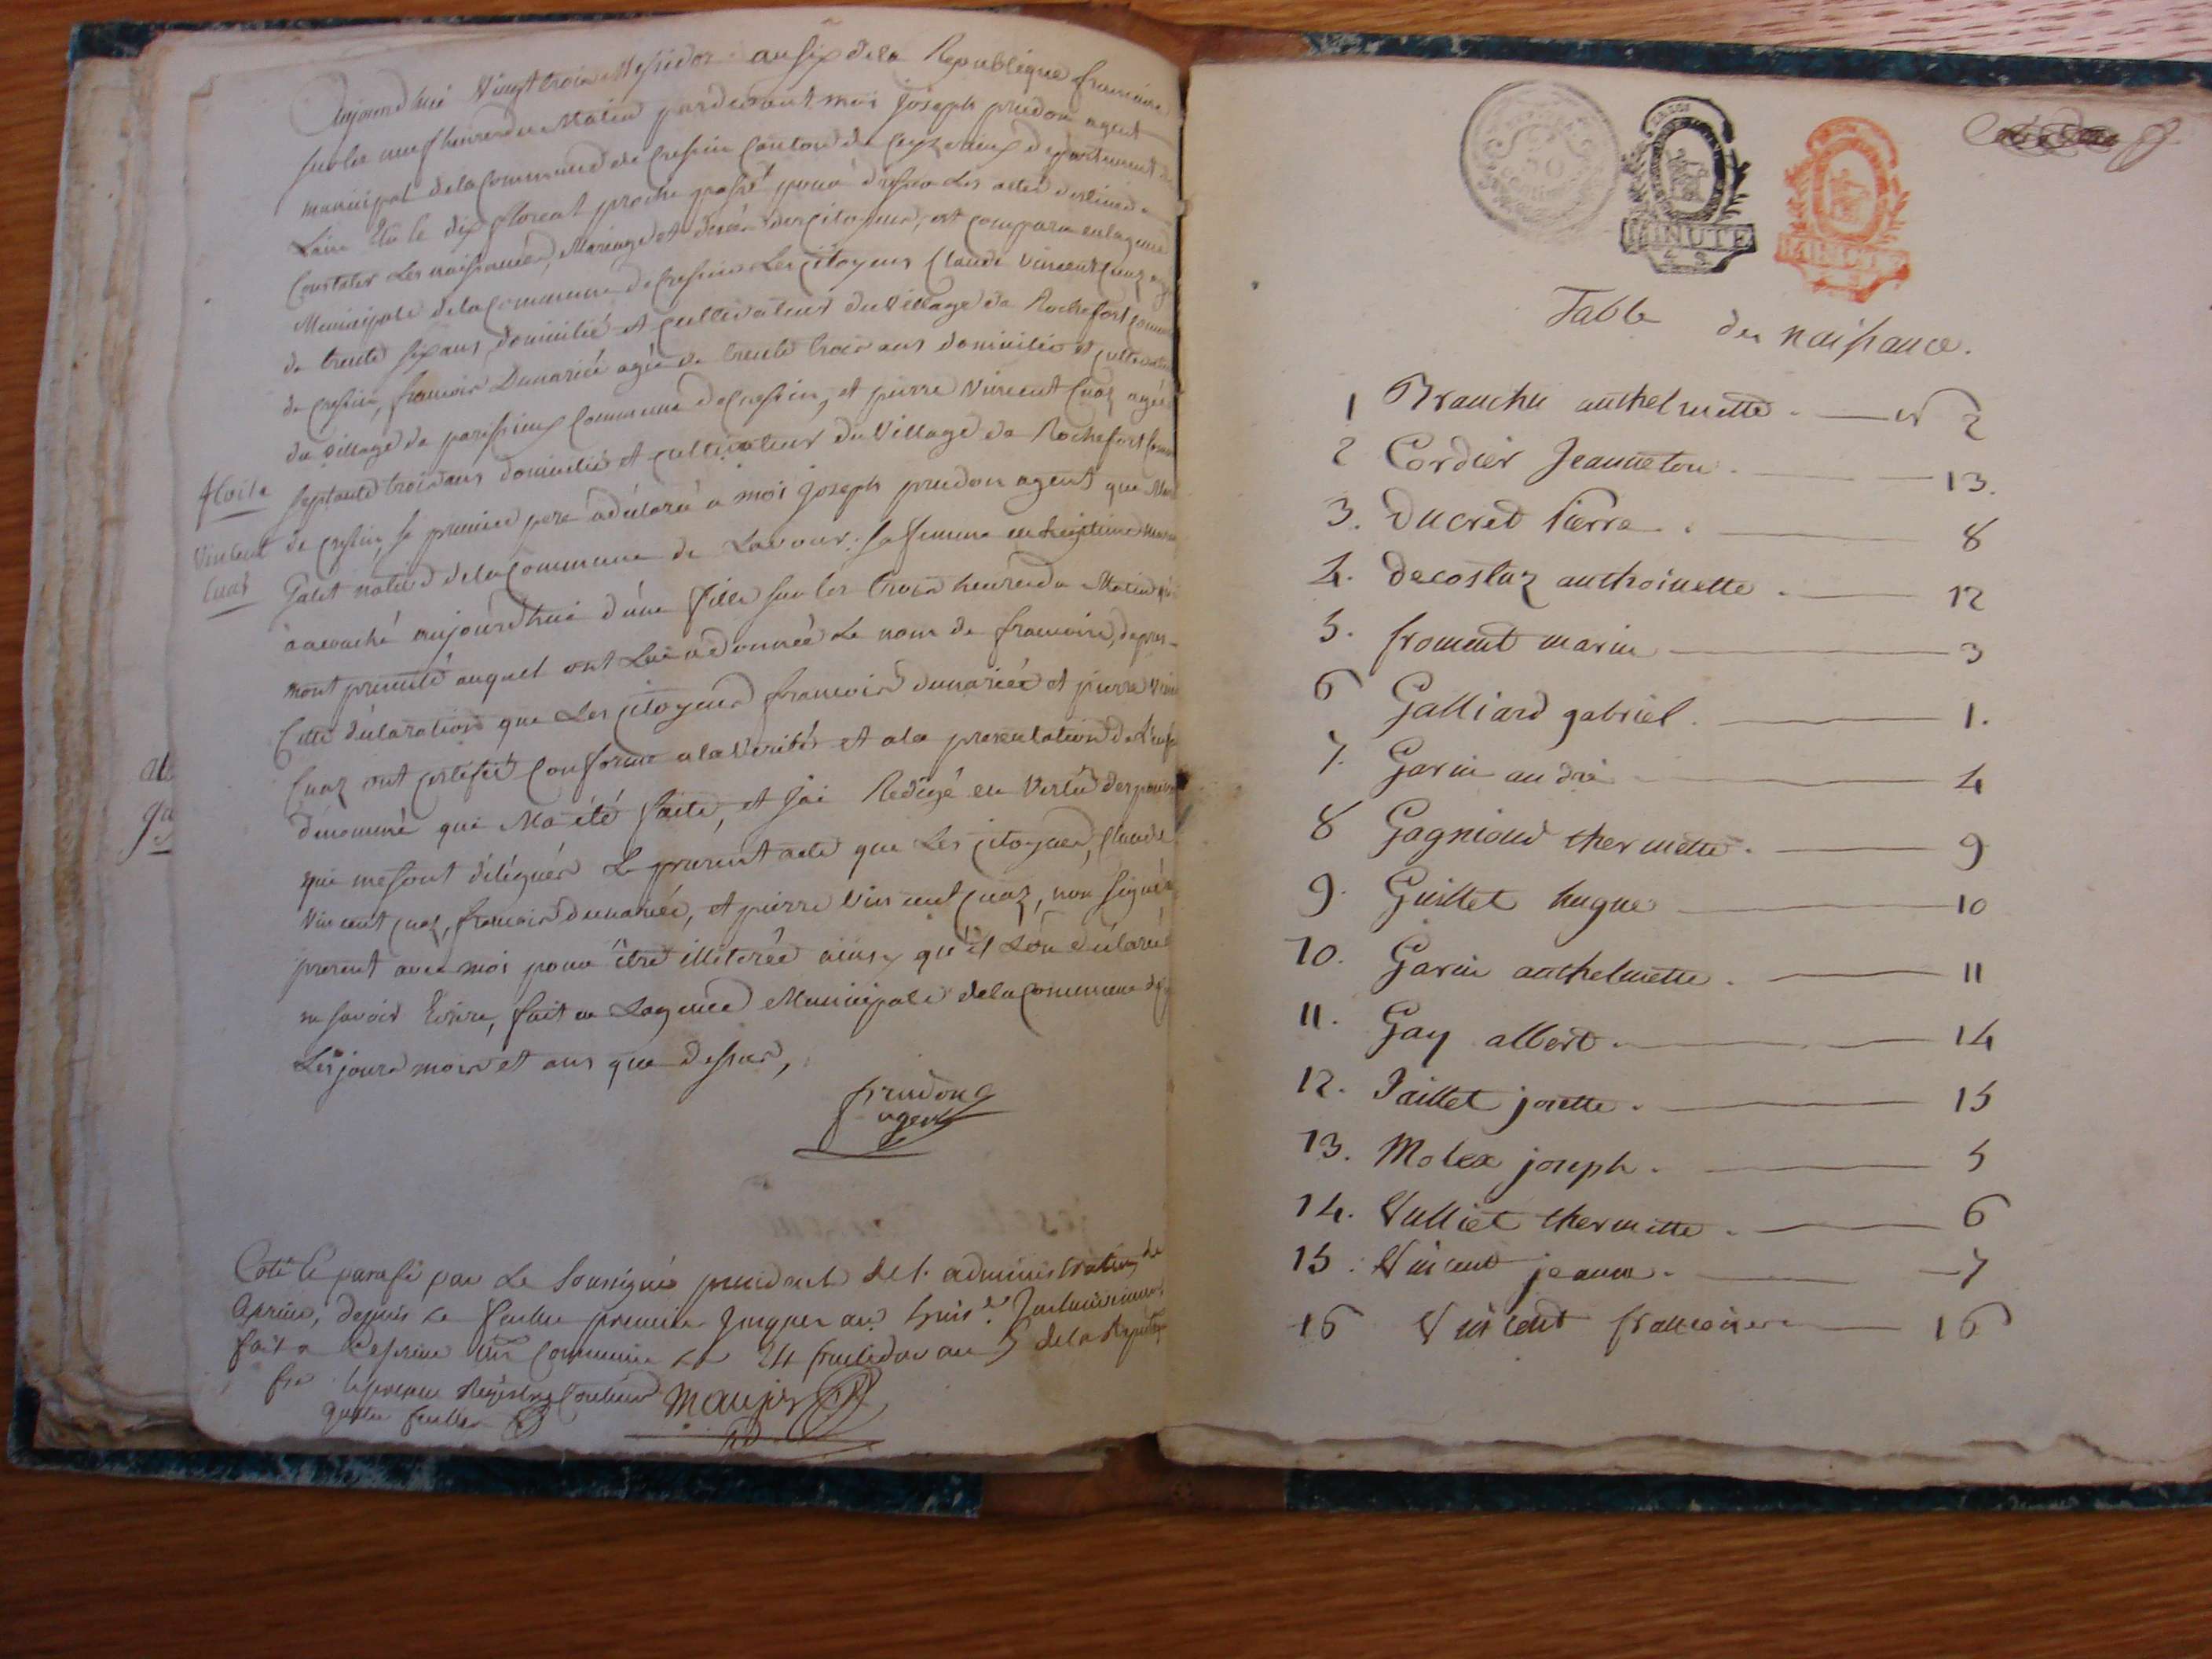 Aujourdhui Vingt trois Messidor an six dela Republique francaise
sur les neuf heures du Matin pardevant moi Joseph prudon agent
municipal dela Commune de Cressin Canton de Ceyzerieux departement de
Lain Elu le dix floreal proche passé pour dresser Les actes destinés a
Constater Les naissances, Mariages et décès des citoyens, est comparu en lagence
Municipale dela Commune de Cressin Les citoyens Claude Vincent Cuaz agé
de trente six ans domicilié et cultivateur du Village de Rochefort Commune
de Cressin, francois Dunariée agée de trente trois ans domicilié et cultivateur
du village de parissieux Commune de Cressin, et pierre Vincent Cuaz agée
septante trois ans domicilié et cultivateur du Village de Rochefort Comm
de Cressin, le premier pere a déclaré a moi Joseph prudon agent que
Galet native dela Commune de Lavour sa femme en
a accouché aujourdhui d'une fille sur les trois heures du Matin
mont présenté auquel ont Lui a donnée Le nom de francoise, depres
Cette déclaration que Les citoyens francois dunariée et pierre Vincent
Cuaz ont certifié Conforme a la Verités et ala presentation de L'enfa
dénommé qui Ma été faite, et Jai Redigé en Vertu des pouvoi
qui me sont délégués Le present acte que Les citoyens, Claude
Vincent Cuaz, francois dunariée, et pierre Vincent Cuaz, non signés
present avec moi pour être illiterée ainsy qu'il Lon déclaré
ne savoir Ecrire, fait en Lagence Municipale dela Commune de
Les jours mois et ans que dessus,
prudon
agent
Vincent
Cuaz
Coté & parafé par Le Soussigné president de l'administration de
Ceyzerieu, depuis Le feuillet premier jusques au inclusivement
fait a Ceyzerieu Le 24 fructidor an 5 dela Repub
fse le present Registre Contenant
quatre feuilles
Maujer
MINUTE
MINUTE
Table des naissance.
1 Brauchu anthelmette. n 2
2 Cordier Jeanneton. 13.
3. Ducret Pierre. 8
4. decostaz anthoinette. 12
5. froment marin 3
6 Galliard gabriel. 1.
7. Garin andré 4
8 Gagnioud thermette. 9
9. Guillet hugue 10
10. Garin anthelmette. 11
11. Gay albert. 14
12. Jaillet josette. 15
13. Molex joseph. 5
14. Vulliet thermette. 6
15. Vincent jeanne. 7
16 Vincent francoise 16